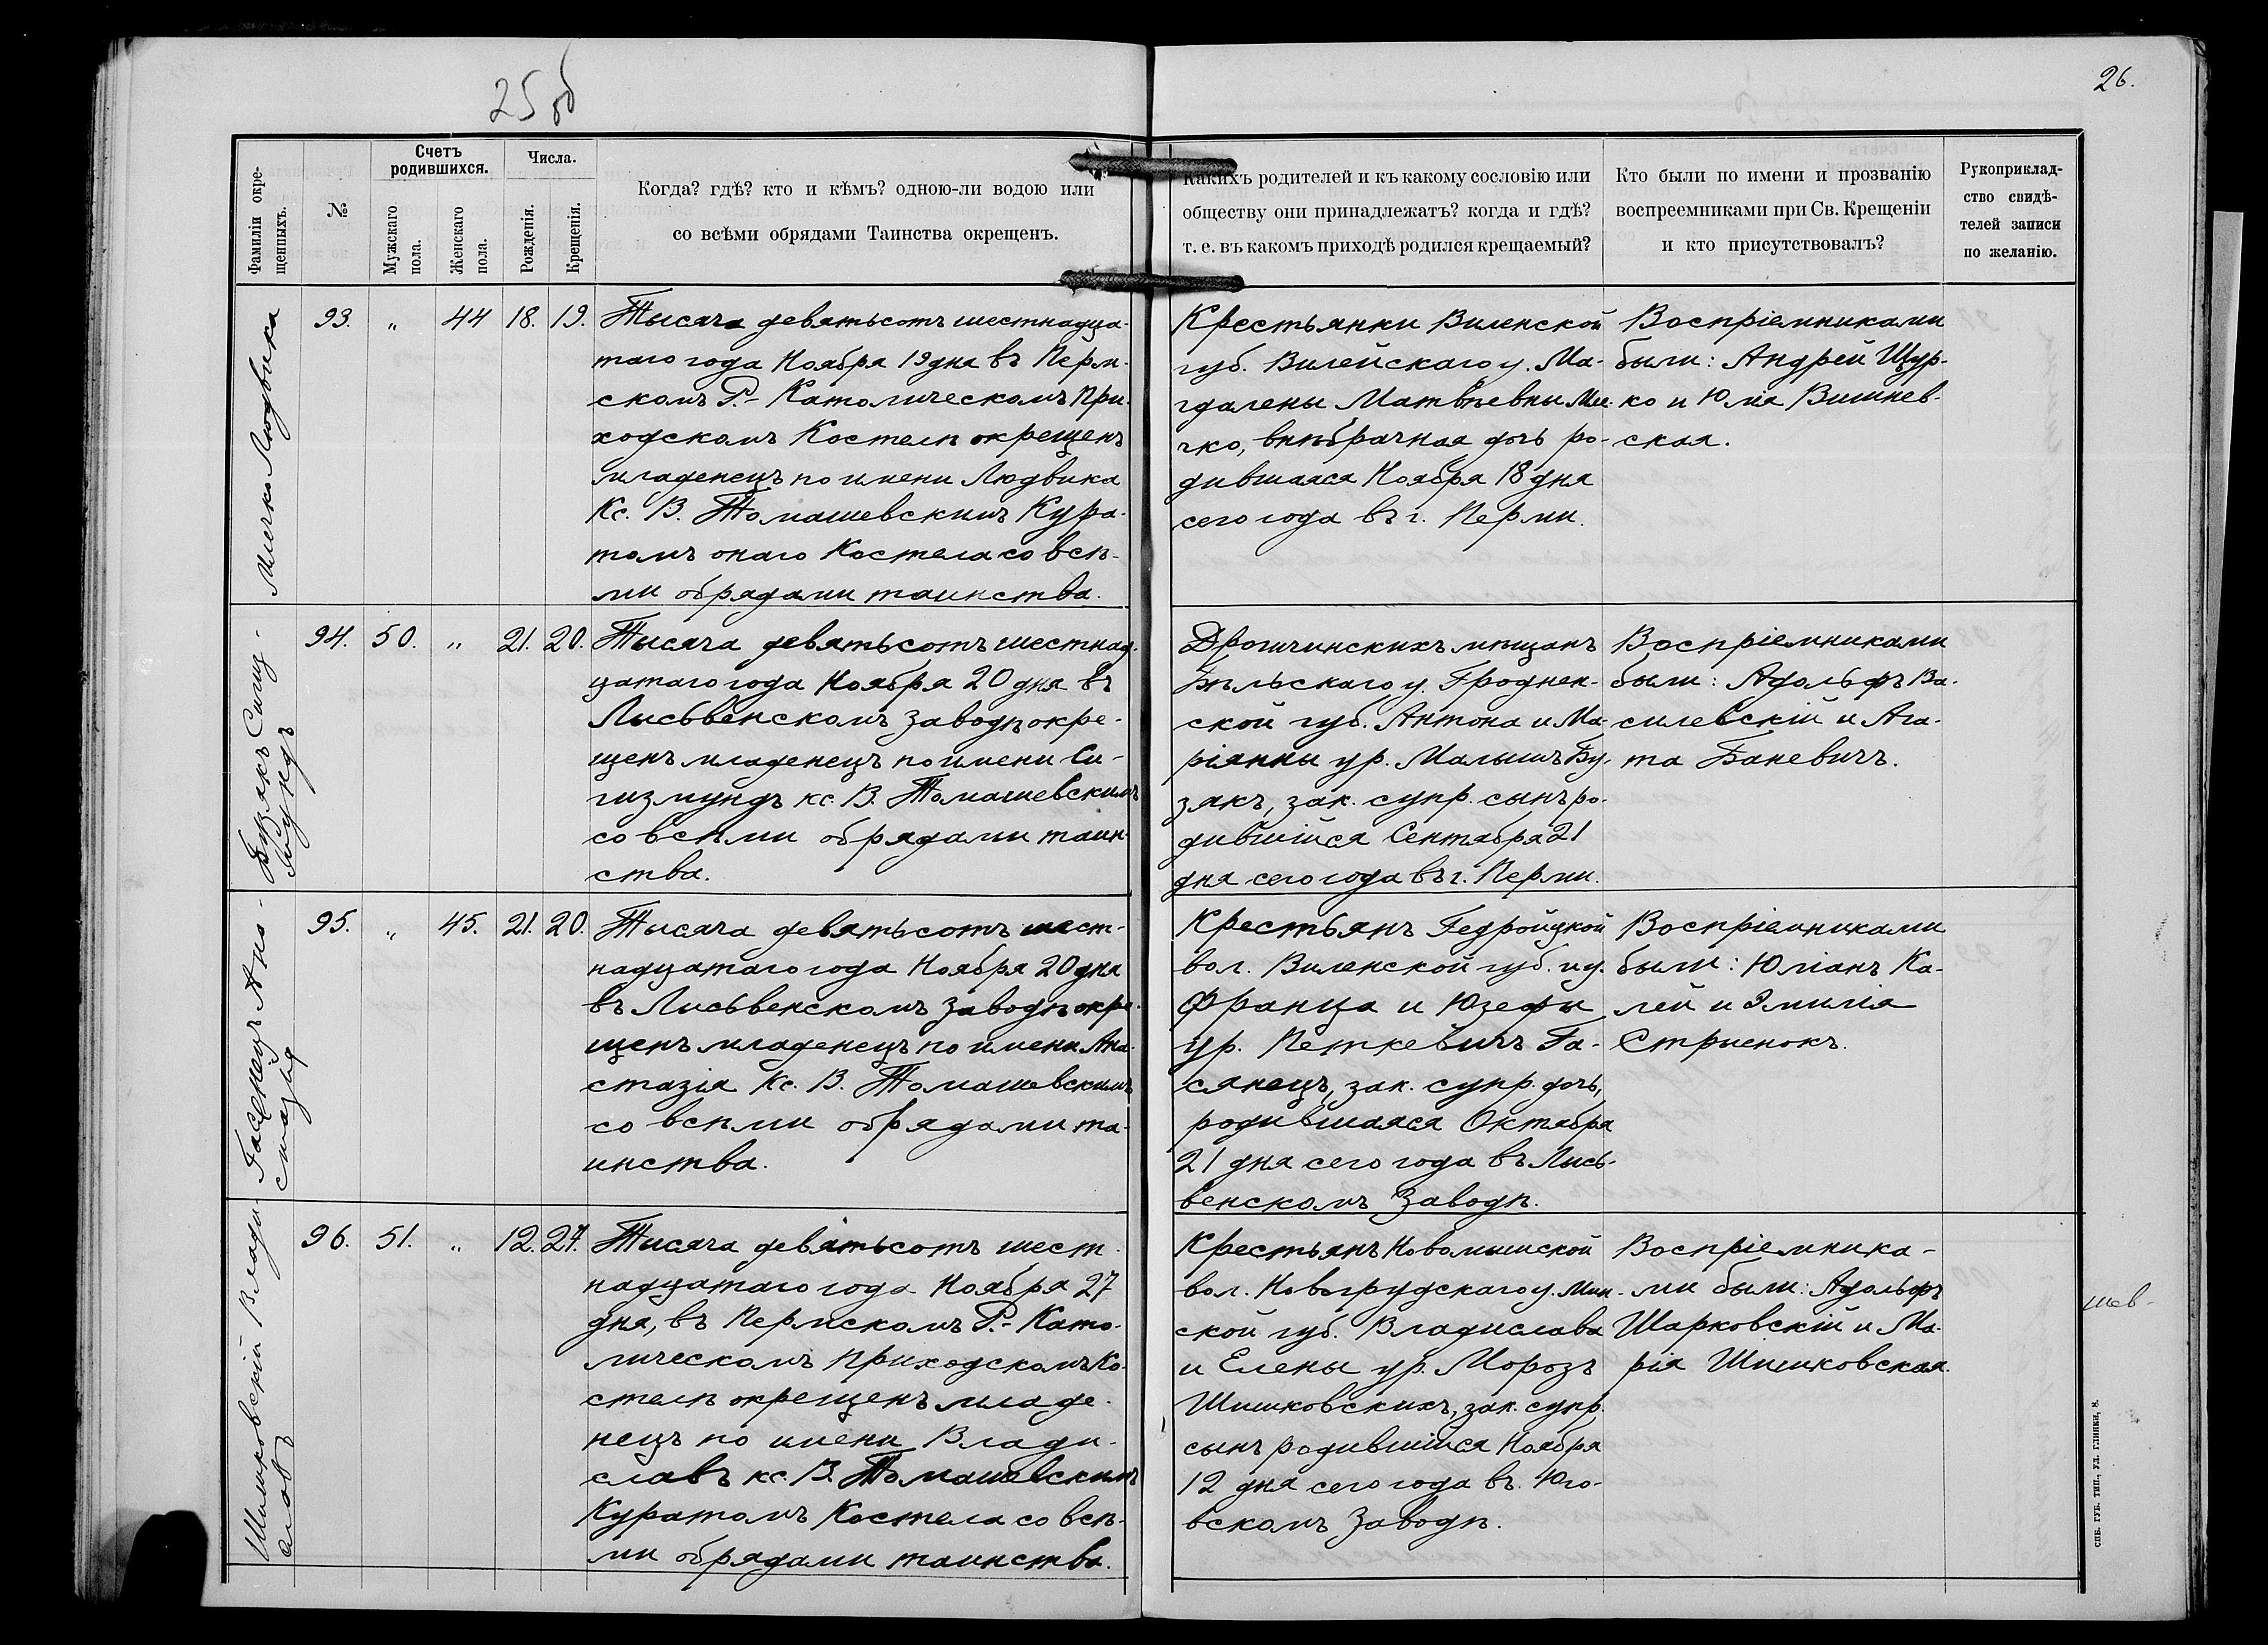 25 об
26.
Фамиліи окре-
щенныхъ.
№
Счетъ
родившихся.
Мужскаго
пола.
Женскаго
пола.
Числа.
Рожденія.
Крещенія.
Когда? гдѣ? кто и кѣмъ? одною-ли водою или
со всѣми обрядами Таинства окрещенъ.
Какихъ родителей и къ какому сословію или
обществу они принадлежатъ? когда и гдѣ?
т. е. въ какомъ приходѣ родился крещаемый?
Кто были по имени и прозванію
воспреемниками при Св. Крещеніи
и кто присутствовалъ?
Рукоприклад-
ство свидѣ-
телей записи
по желанію.
Мичко Людвика
93. „ 44 18. 19.
Тысяча девятьсотъ шестнадца-
таго года Ноября 19 дня въ Перм-
скомъ Р.-Католическомъ При-
ходскомъ Костелѣ окрещенъ
младенецъ по имени Людвика
Кс. В. Томашевскимъ Кура-
томъ онаго Костела со всѣ-
ми обрядами таинства.
Крестьянки Виленской
губ. Вилейскаго у. Ма-
гдалены Матвѣевны Ми-
чко, внѣбрачная дочь ро-
дившаяся Ноября 18 дня
сего года въ г. Перми.
Воспріемниками
были: Андрей Щур-
ко и Юлія Вишнев-
ская.
Бузякъ Сигиз-
мундъ
94. 50. „ 21. 20.
Тысяча девятьсотъ шестнад-
цатаго года Ноября 20 дня въ
Лысьвенскомъ заводѣ окре-
щенъ младенецъ по имени Си-
гизмундъ кс. В. Томашевскимъ
со всѣми обрядами таин-
ства.
Дрогичинскихъ мѣщанъ
Бѣльскаго у. Гроднен-
ской губ. Антона и Ма-
ріянны ур. Малышъ Бу-
зякъ, зак. супр. сынъ ро-
дившійся Сентября 21
дня сего года въ г. Перми.
Воспріемниками
были: Адольфъ Ва-
силевскій и Ага-
та Баневичъ.
Гасянецъ Ана-
стазія
95. „ 45. 21. 20.
Тысяча девятьсотъ шест-
надцатаго года Ноября 20 дня
въ Лысьвенскомъ заводѣ окре-
щенъ младенецъ по имени Ана-
стазія Кс. В. Томашевскимъ
со всѣми обрядами та-
инства.
Крестьянъ Гедройцкой
вол. Виленской губ. и у.
Франца и Юзефы
ур. Петкевичъ Га-
сянецъ, зак. супр. дочь,
родившаяся Октября
21 дня сего года въ Лысь-
венскомъ Заводѣ.
Воспріемниками
были: Юліанъ Ка-
лей и Эмилія
Стрыенокъ.
Шишковскій Влади-
славъ
96. 51. „ 12. 27.
Тысяча девятьсотъ шест-
надцатаго года Ноября 27
дня, въ Пермскомъ Р.-Като-
лическомъ Приходскомъ Ко-
стелѣ окрещенъ младе-
нецъ по имени Влади-
славъ кс. В. Томашевскимъ
Куратомъ Костела со всѣ-
ми обрядами таинства.
Крестьянъ Новомышской
вол. Новогрудскаго у. Мин-
ской губ. Владислава
и Елены ур. Морозъ
Шишковскихъ, зак. супр.
сынъ родившійся Ноября
12 дня сего года въ Юго-
вскомъ Заводѣ.
Воспріемника-
ми были: Адольфъ
Шарковскій и Ма-
рія Шишковская.
шев-
СПБ. ГУБ. ТИП., УЛ. ГЛИНКИ, 8.